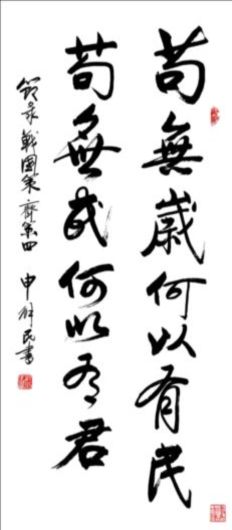 苟無歲何以有民
苟無民何以有君
節录戰國策齊策四 申民書